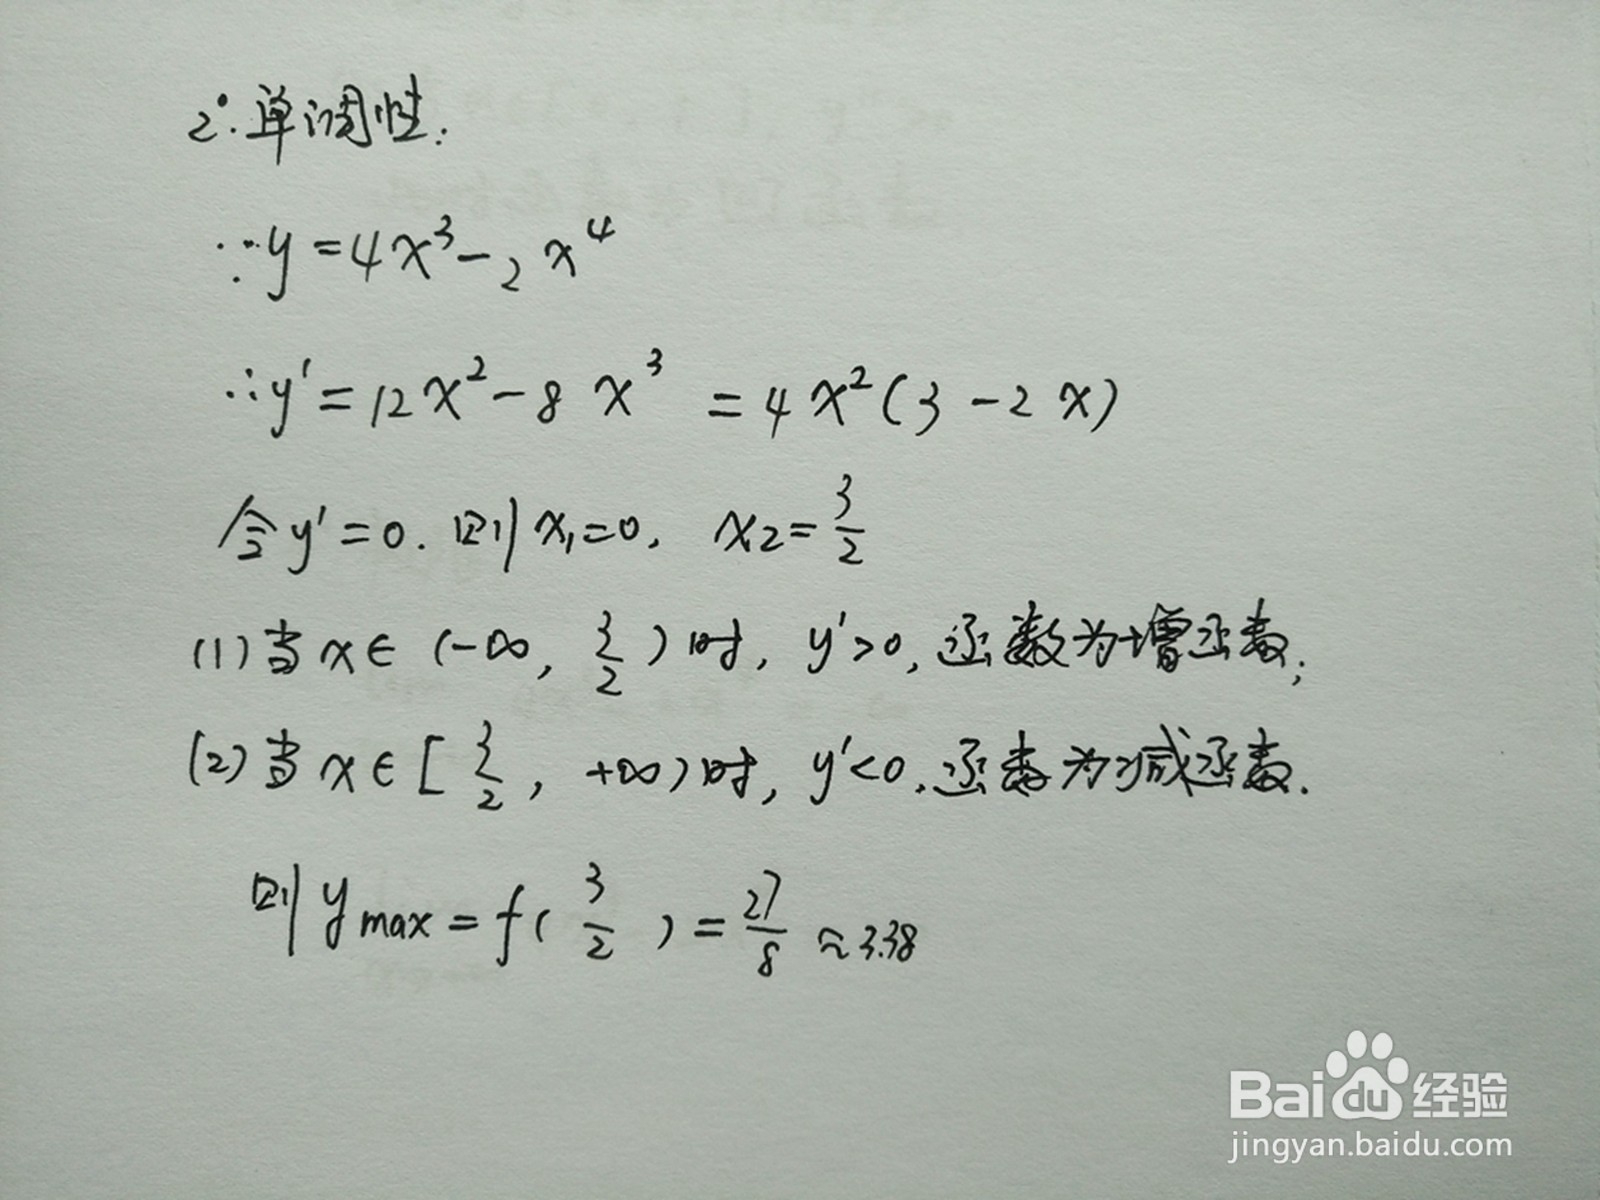 2°.单调性:
∵y=4x³-2x⁴
∴y'=12x²-8x³=4x²(3-2x)
令y'=0.则x₁=0, x₂=3/2
(1)当x∈(-∞, 3/2)时, y'>0, 函数为增函数;
(2)当x∈[3/2, +∞)时, y'<0.函数为减函数.
则ymax=f(3/2)=27/8≈3.38
Baidu经验
jingyan.baidu.com